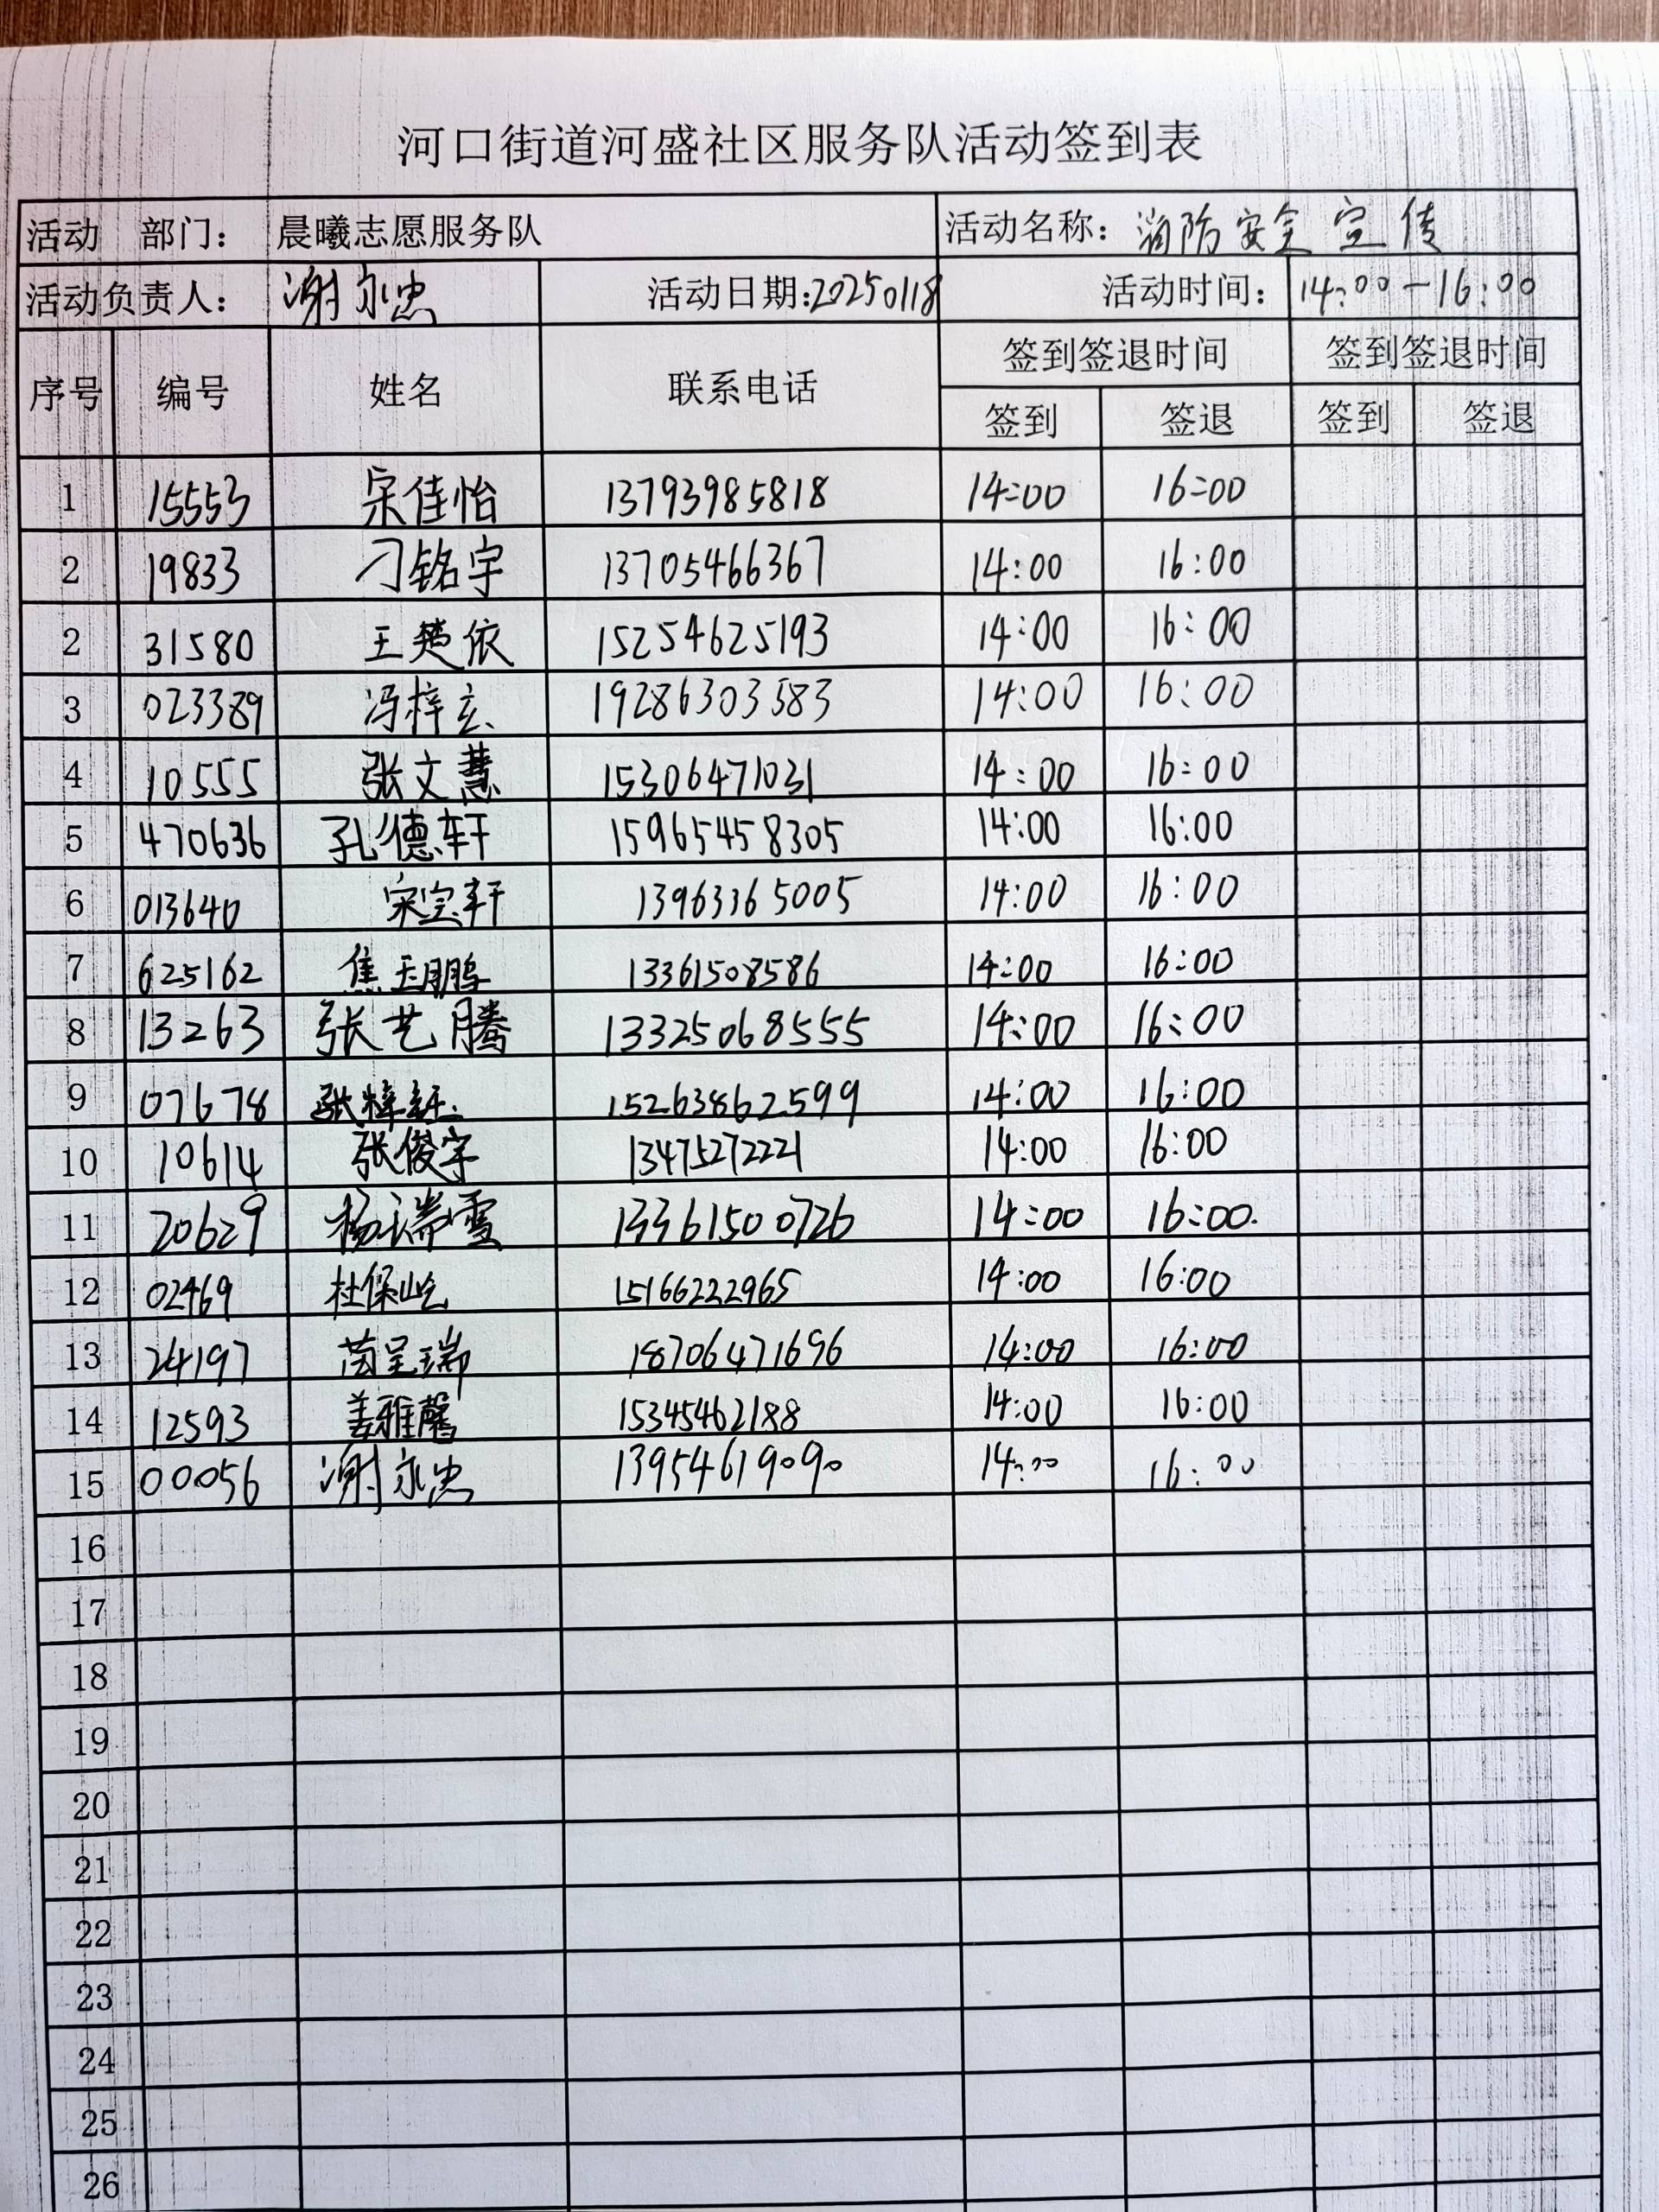 河口街道河盛社区服务队活动签到表
活动 部门： 晨曦志愿服务队 活动名称：消防安全宣传
活动负责人： 谢永忠 活动日期:20250118 活动时间： 14:00-16:00
序号 编号 姓名 联系电话 签到签退时间 签到签退时间
签到 签退 签到 签退
1 15553 宋佳怡 13793985818 14:00 16:00
2 19833 刁铭宇 13705466367 14:00 16:00
2 31580 王楚依 15254625193 14:00 16:00
3 023389 冯梓玄 19286303583 14:00 16:00
4 10555 张文慧 15306471031 14:00 16:00
5 470636 孔德轩 15965458305 14:00 16:00
6 013640 宋宗轩 13963365005 14:00 16:00
7 625162 焦玉鹏 13361508586 14:00 16:00
8 13263 张艺腾 13325068555 14:00 16:00
9 07678 张梓钰 15263862599 14:00 16:00
10 10614 张俊宇 13475272221 14:00 16:00
11 20629 杨瑞雪 13361500726 14:00 16:00.
12 02469 杜保屹 15166222965 14:00 16:00
13 24197 呈瑞 18706471696 14:00 16:00
14 12593 姜雅馨 15345462188 14:00 16:00
15 00056 谢永忠 13954619090 14:00 16:00
16
17
18
19
20
21
22
23
24
25
26